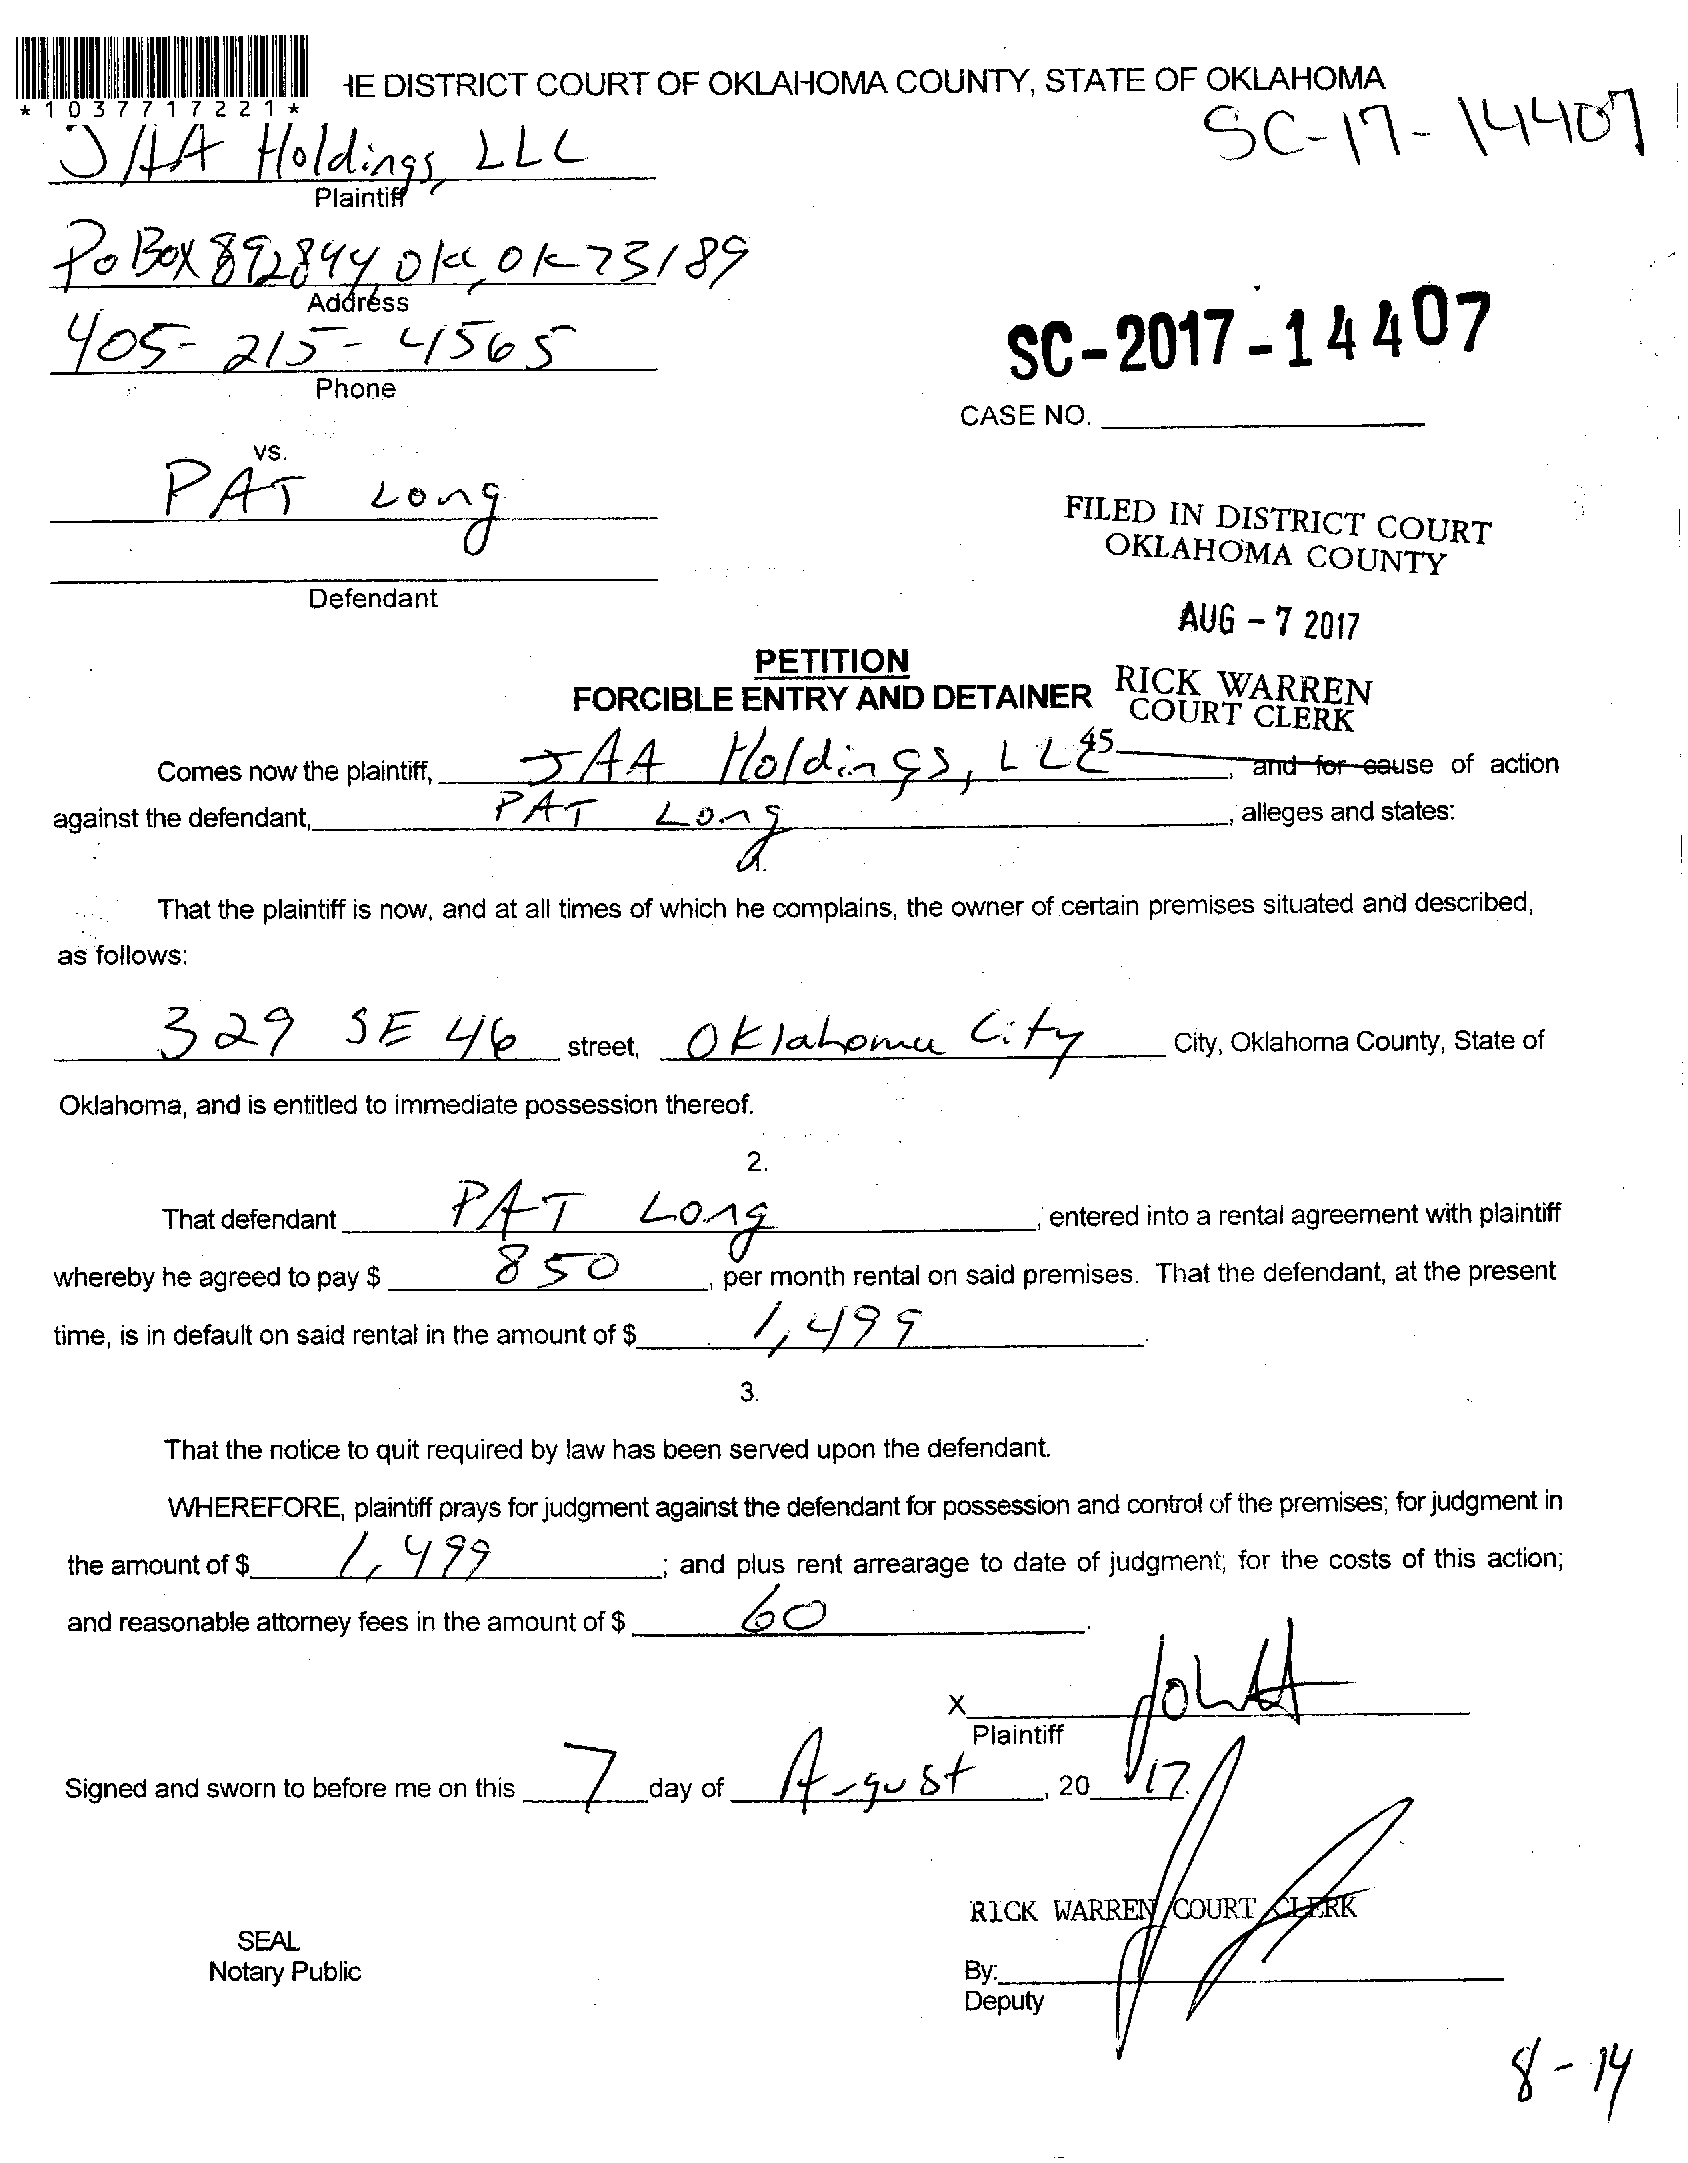 HE DISTRICT COURT OF OKLAHOMA COUNTY, STATE OF OKLAHOMA
*1037717221*
SC-17-14407
JAA Holdings, LLC
Plaintiff
Po Box 892844, OKC, OK 73189
Address
405-215-4565
Phone
SC-2017-14407
CASE NO.
vs.
PAT Long
Defendant
FILED IN DISTRICT COURT
OKLAHOMA COUNTY
AUG - 7 2017
RICK WARREN
COURT CLERK
45
PETITION
FORCIBLE ENTRY AND DETAINER
Comes now the plaintiff, JAA Holdings, LLC, and for cause of action
against the defendant, PAT Long, alleges and states:
That the plaintiff is now, and at all times of which he complains, the owner of certain premises situated and described,
as follows:
329 SE 46 street, Oklahoma City City, Oklahoma County, State of
Oklahoma, and is entitled to immediate possession thereof.
2.
That defendant PAT Long, entered into a rental agreement with plaintiff
whereby he agreed to pay $ 850, per month rental on said premises. That the defendant, at the present
time, is in default on said rental in the amount of $ 1,499.
3.
That the notice to quit required by law has been served upon the defendant.
WHEREFORE, plaintiff prays for judgment against the defendant for possession and control of the premises; for judgment in
the amount of $ 1,499; and plus rent arrearage to date of judgment; for the costs of this action;
and reasonable attorney fees in the amount of $ 60.
X
Plaintiff
Signed and sworn to before me on this 7 day of August, 20 17.
RICK WARREN COURT CLERK
SEAL
Notary Public
By:
Deputy
8-14